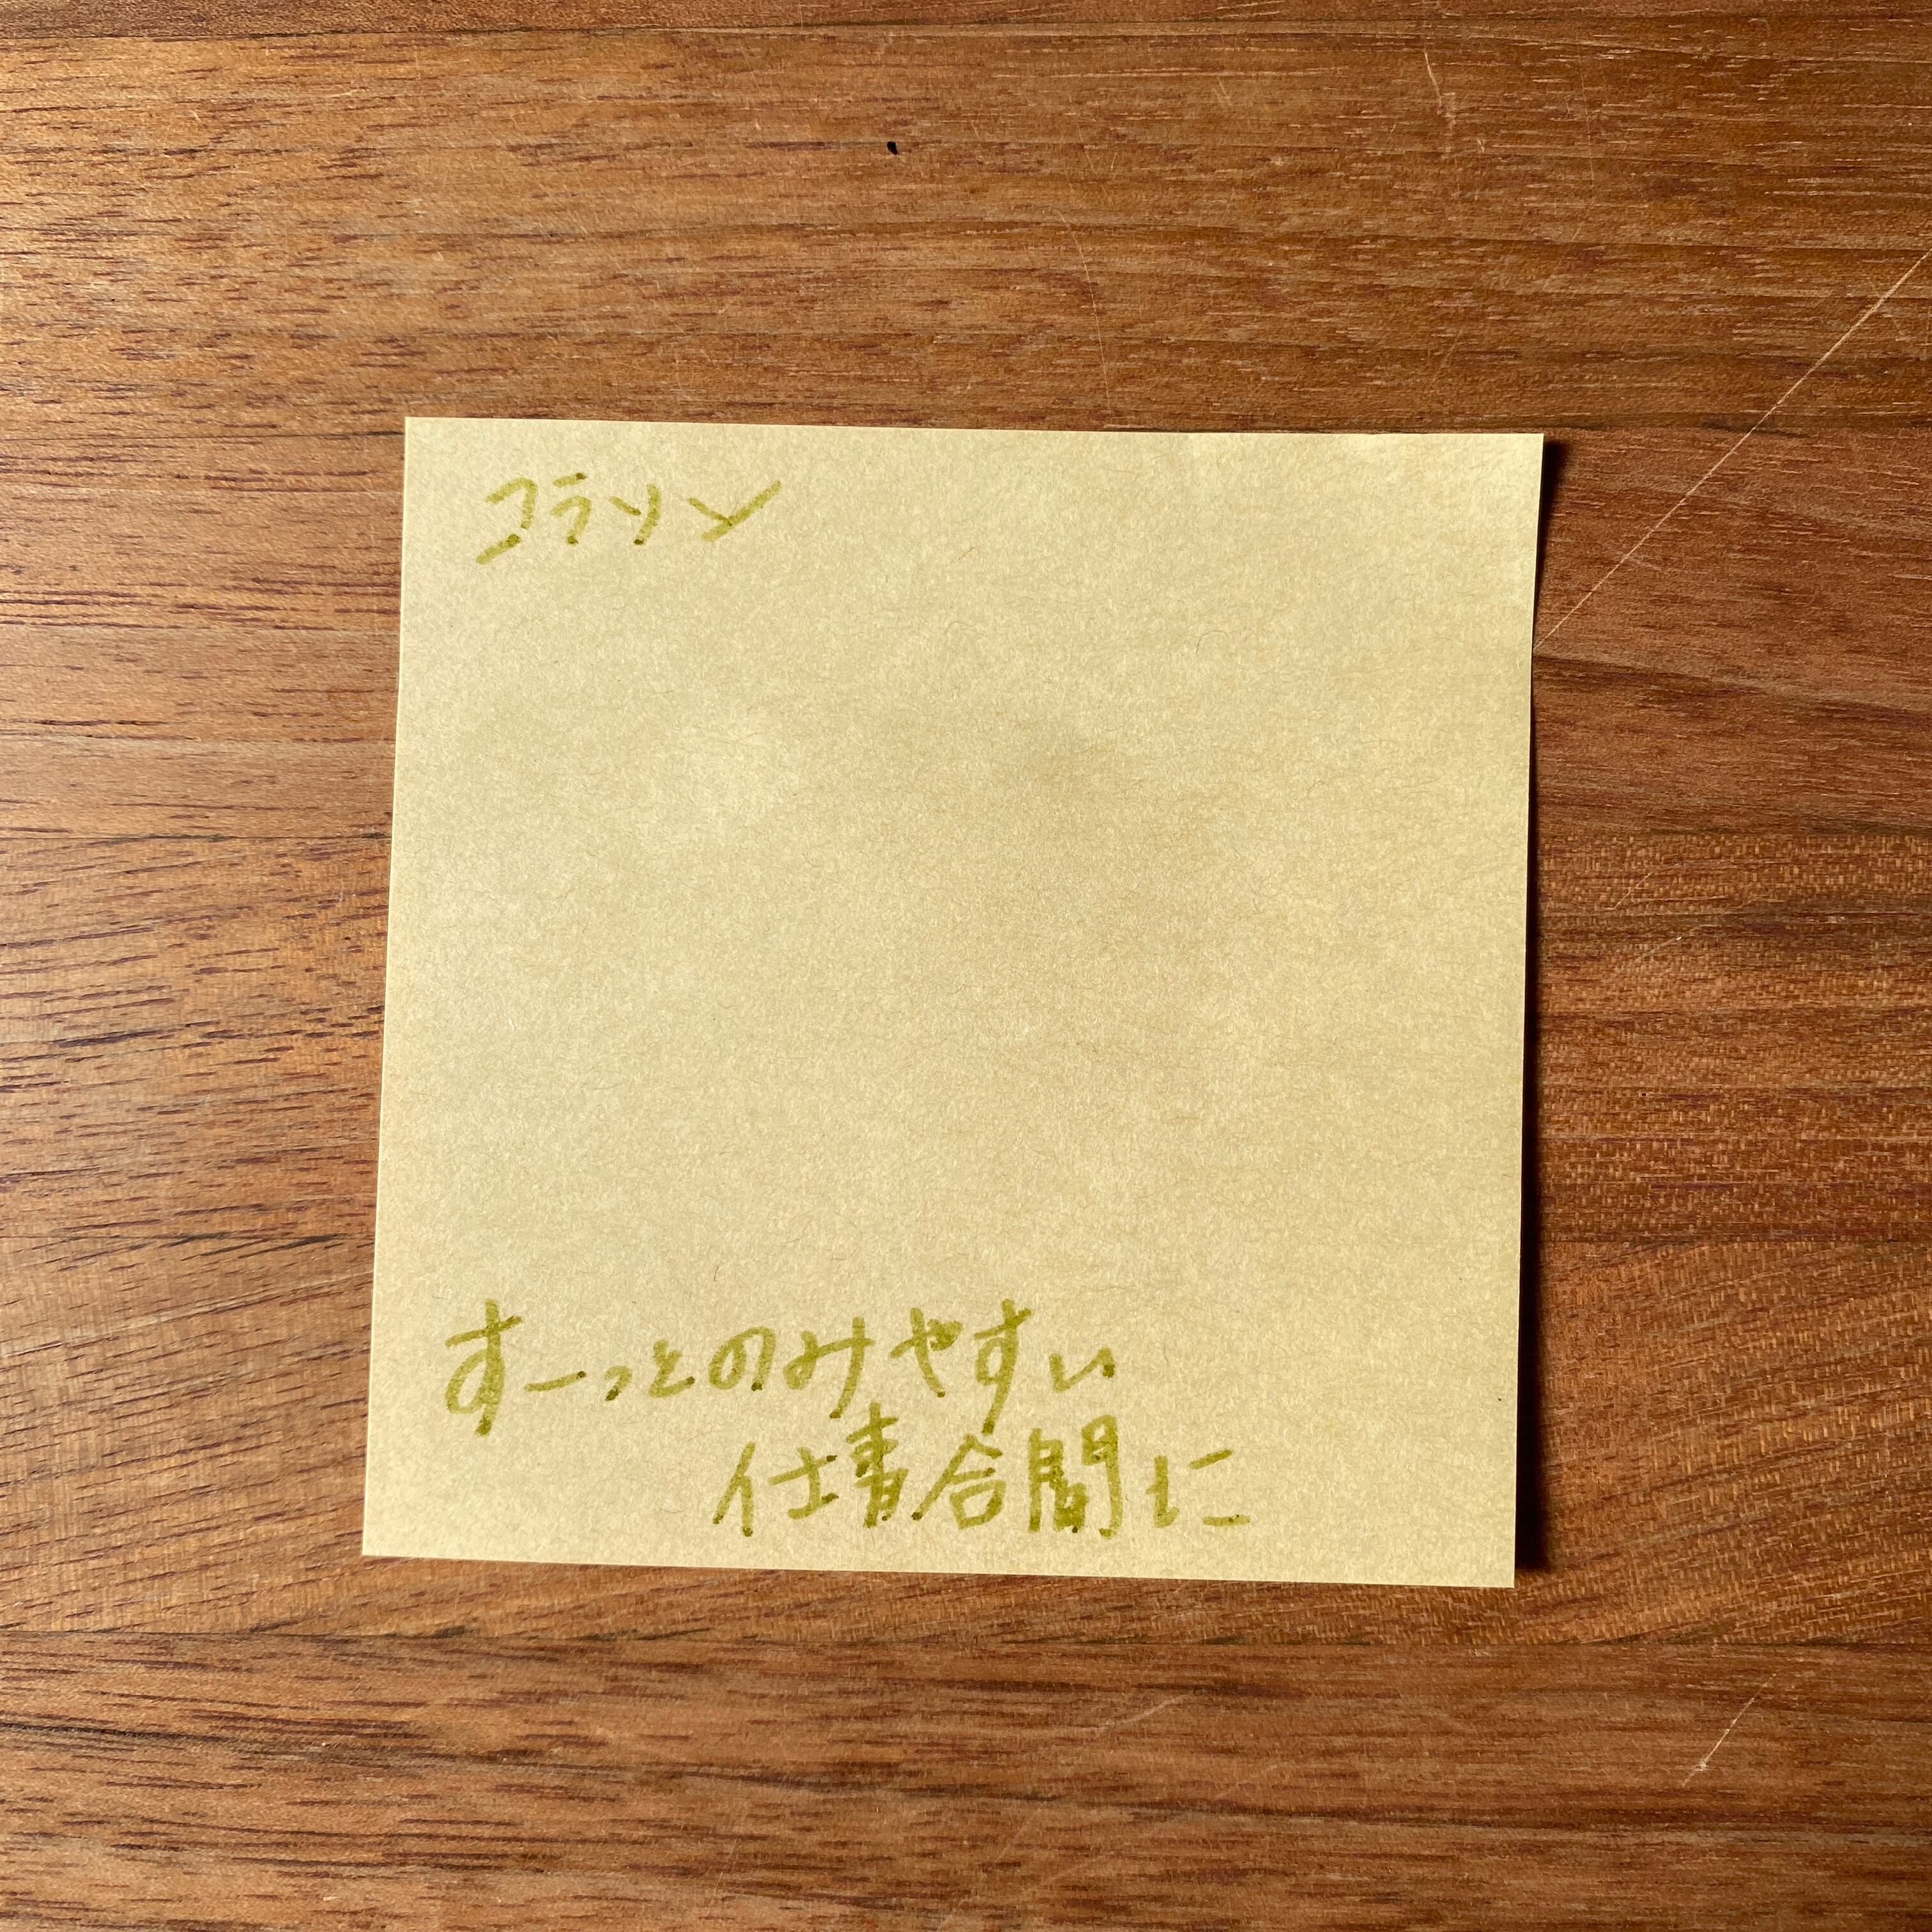 コラソン
すーっとのみやすい
仕事合間に